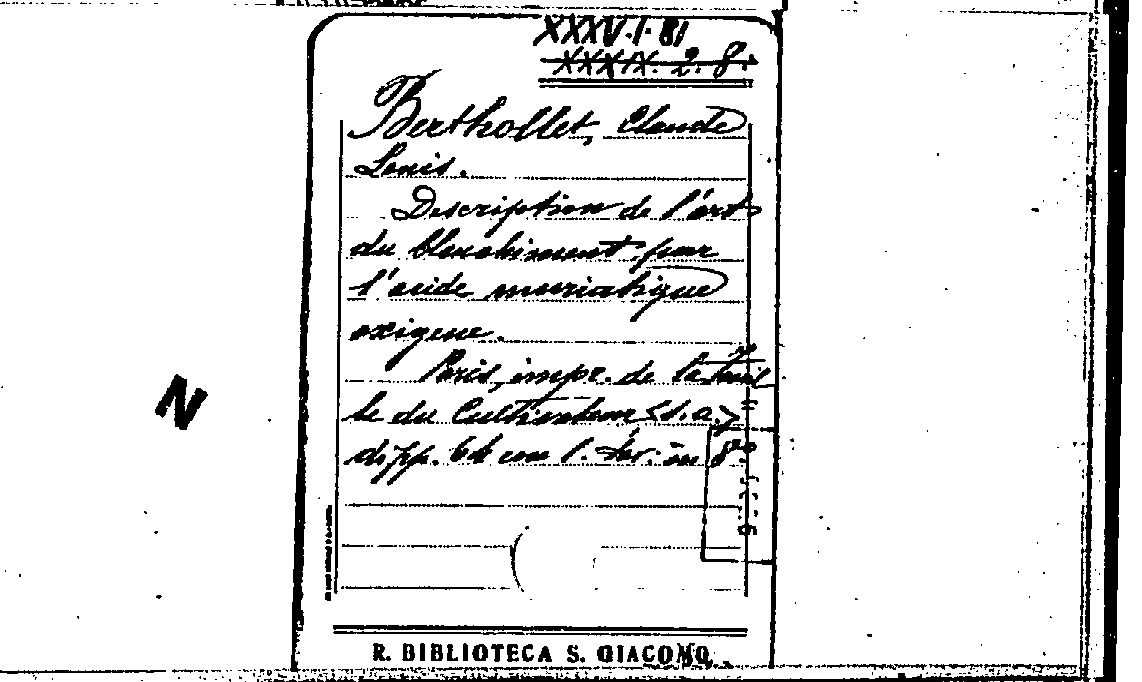 XXXV·I·81
XXXIX. 2. 8.
Berthollet, Claude
Louis.
Description de l'art
du blanchiment pour
l'acide muriatique
oxigene.
Paris, impr. de la Feuil
le du Cultivateur <s.a.>
di pp. 64 con 1. tav. in 8º
N
R. BIBLIOTECA S. GIACOMO